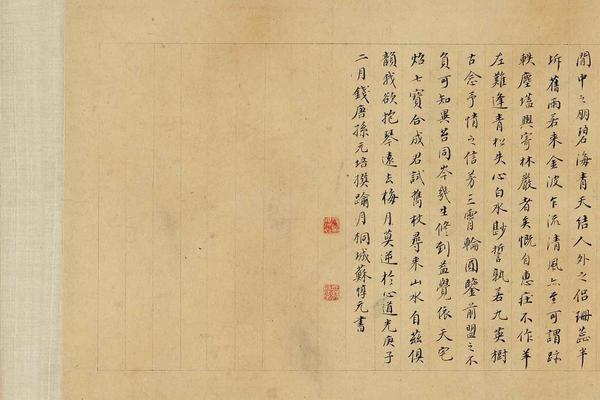 閒中之朋碧海青天結人外之侶珊蕊半
坼舊雨若來金波乍流清風亦至可謂跡
軼塵壒興寄林巖者矣慨自惠莊不作羊
左難逢青松失心白水眇誓孰若九英樹
古念予情之信芳三霄輪圓鑒前盟之不
負可知異苔同岑幾生修到益覺依天宅
焰七寶合成君試攜杖尋來山水自茲俱
韻我欲抱琴遠去梅月莫逆於心道光庚子
二月錢唐孫元培撰踰月桐城蘇惇元書